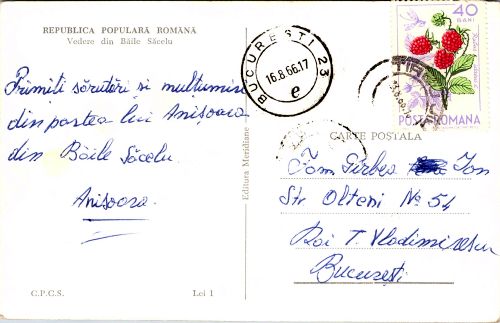 REPUBLICA POPULARĂ ROMÂNĂ
Vedere din Băile Săcelu
Primiți sărutări și mulțumiri
din partea lui Anișoara
din Băile Săcelu
Anișoara
C.P.C.S.
Lei 1
Editura Meridiane
BUCUREȘTI 23
16.8.66.17
e
40
BANI
POSTA ROMANA
CARTE POȘTALĂ
Tov. Gîrbea Ion
Str Olteni No 54
Rai T. Vladimirescu
București